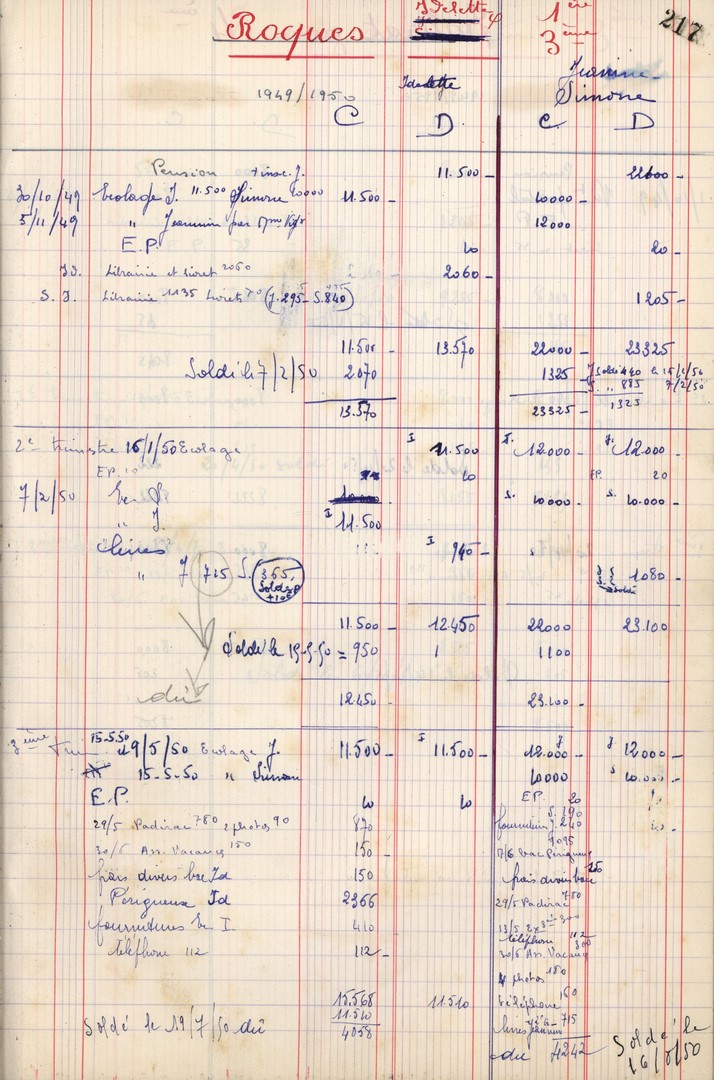 217
Roques
Idelette
1ère
3ème
Idelette
Jeanine
Simone
1949/1950
C D C D
Pension + insc. J. 11.500 - 22600 -
30/10/49 Ecolage J. 11.500 Simone 10000 11.500 - 10000 -
5/11/49 " Jeannine par 12000
E.P. 10 20 -
Id. Librairie et livret 2060 2060 -
S. J. Librairie 1135 Livrets 70 (J. 295 - S. 840) 1205 -
11.500 - 13.570 22000 - 23325
Soldé le 7/2/50 2.070 1325 - J Soldé 440 le
S. " 885 7/2/50
13.570 23325 - 1325
2e trimestre 16/1/50 Ecolage I 11.500 - J. 12.000 - J. 12.000
EP. 10 10 EP. 20
7/2/50 Ec S. 10.000 S. 10000 - S. 10.000 -
" J. I 11.500
Livres I 940 -
" J 715 S. 365, Solde P +10 EP 1080 -
11.500 - 12.450 22000 23.100
Soldé le 15-5-50 = 950 1100
dû 12.450 23.100 -
3ème Trim 15.5.50
19/5/50 Ecolage J. 11.500 - I 11.500 - J 12.000 - J 12000 -
15-5-50 " Simone 10000 S 10.000 -
E.P. 10 10 EP. 20
S. 190
29/5 Padirac 780 2 photos 90 870 fournitures J. 240
30/5 Ass. Vacances 150 150 - 4095
17/6 bac Périgueux
frais divers bac Id 150 frais divers bac 150
Périgueux Id 2366 29/5 Padirac 780
fournitures Ec I 410 13/5 Ex 300
téléphone 112 112 - téléphone 112
30/5 Ass. Vacances 300
4 photos 180
15.568 11.510 téléphone 160
11.510 livres Jeannine 715
Soldé le 19/7/50 dû 4058 dû 4242
Soldé le